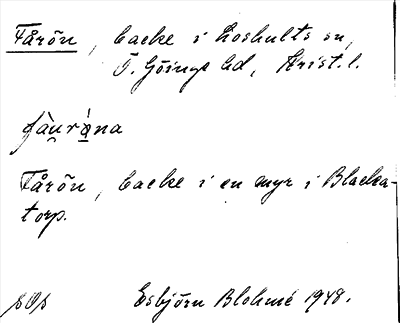 Fårön, backe i Loshults sn,
Ö. Göinge hd, Krist. l.
fàu̯rø̀na
Fårön, backe i en myr i Blacka-
torp.
Esbjörn Blohmé 1948.